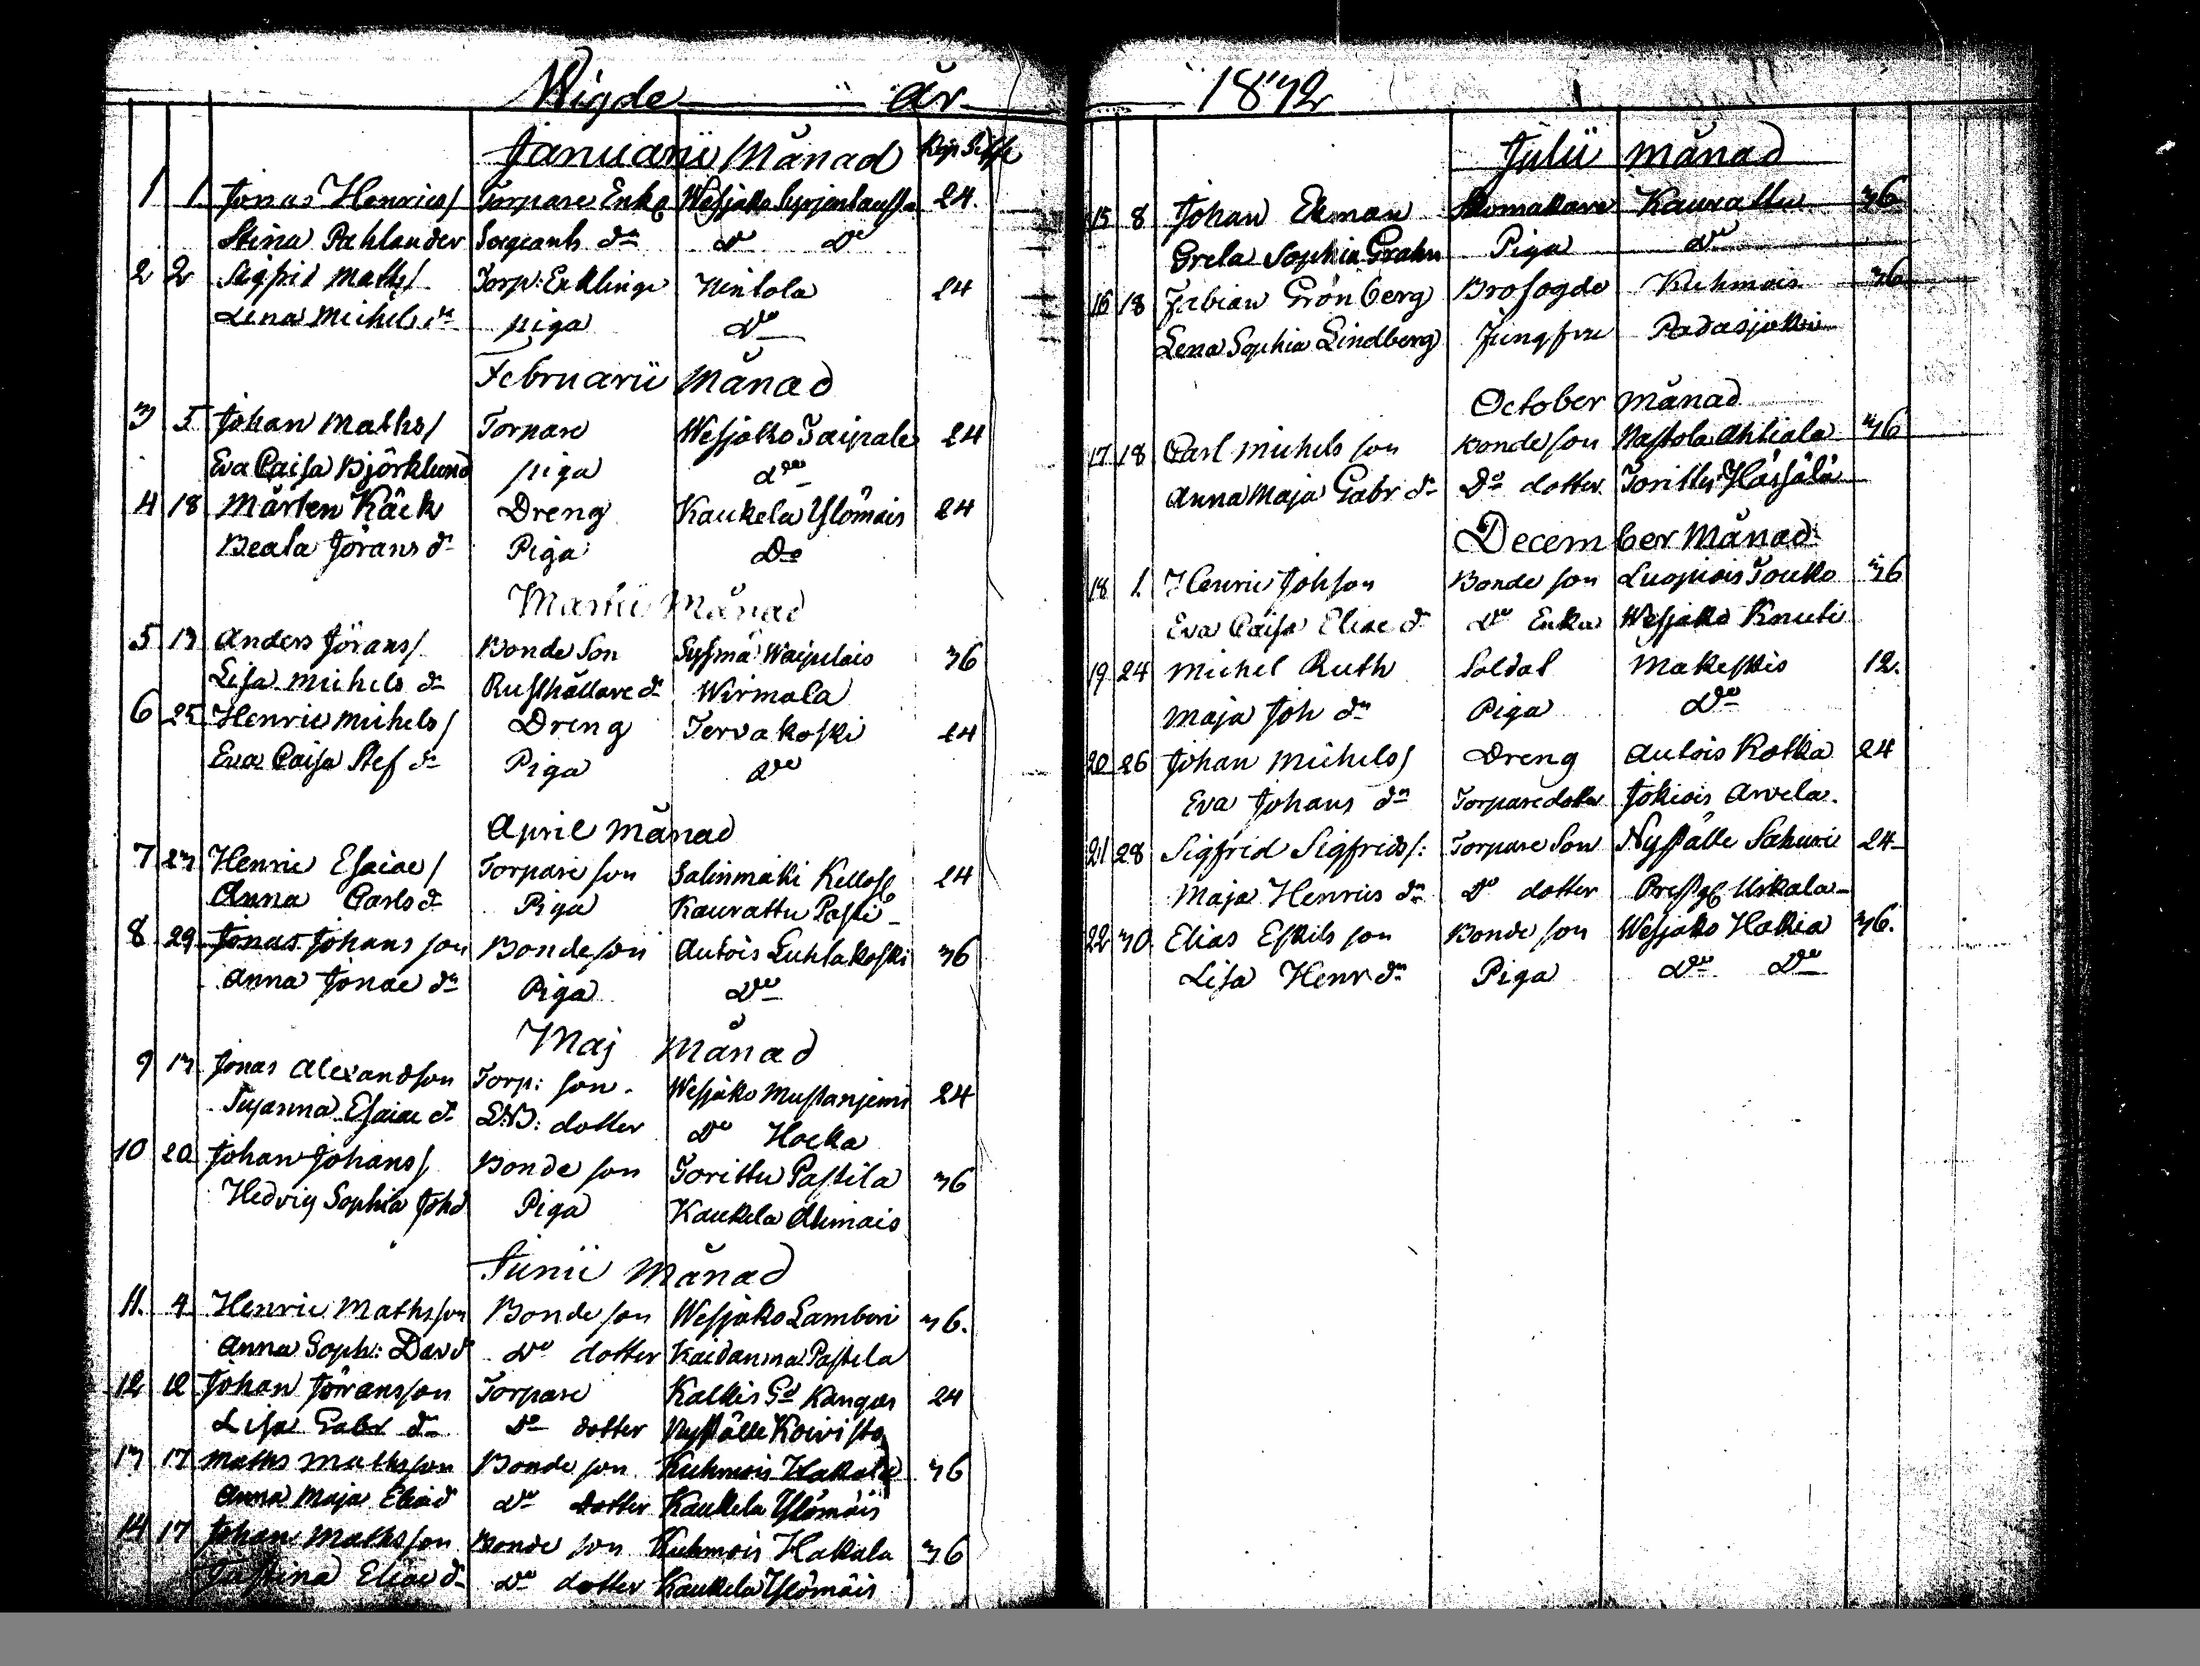 Wigde år 1842
Januarii Månad Kop Silfr
1 1 Jonas Henrics/ Torpare Enkl Wesjako 24.
Stina Pahlander Sergeants dr do do
2 2 Sigfrid Mats/ Torp: Enkling Nentola 24
Lena Michels dr piga do
Februarii Månad
3 5 Johan Maths/ Torpare Wesjako Taipale 24
Eva Caisa Björklund piga do
4 18 Mårten Käck Dreng Kaukela Ylömäis 24
Beata Jörans dr Piga Do
Martii Månad
5 13 Anders Jörans/ Bonde Son Sysmä Waipulais 36
Lisa Michels dr Rusthållare dr Wirmala
6 25 Henric Michels/ Dreng Tervakoski 24
Eva Caisa Stef dr Piga do
April Månad
7 23 Henric Esaiae/ Torpare son Salinmäki 24
Anna Carls dr Piga Kaurattu
8 29 Jonas Johans son Bonde son Autois Luhlakoski 36
Anna Jonae dr Piga do
Maj Månad
9 13 Jonas Alexandson Torp: son. Wesjako Mustanjemi 24
Susanna Esaiae dr dotter do Hocka
10 20 Johan Johans/ Bonde son Torittu Pastila 36
Hedvig Sophia Joh d Piga Kaukela
Junii Månad
11. 4 Henric Mathsson Bonde son Wesjako Lamberi 36.
Anna Soph: Dav d do dotter Kaidanma Pastila
12 12 Johan Jöransson Torpare Kalkis Gd Kangas 24
Lisa Gabr dr Do dotter Nyställe Koivisto
13 17 Maths Mathsson Bonde son Kuhmois Hakala 36
Anna Maja Eliae d do dotter Kaukela Ylömäis
14 17 Johan Mathsson Bonde son Kuhmois Hakala 36
Justina Eliae dr do dotter Kaukela Ylömäis
Julii månad
15 8 Johan Ekman Skomakare Kaurattu 36
Greta Sophia Grahn Piga do
16 18 Fabian Grönberg Brofogde Kuhmois 36
Lena Sophia Lindberg Jungfru Padasjoki
October månad
17 18 Carl Michels son Bonde son Nastola Ahtiala 36
Anna Maja Gabr dr Do dotter Torittu
December Månad
18 1. Henric Johson Bonde son Luopiois Touko 36
Eva Caisa Eliae d do Enka Wesjako Knuti
19 24 Michel Ruth Soldat Makeskis 12.
Maja Joh dr Piga do
20 26 Johan Michels/ Dreng Autois Kotka 24
Eva Johans dr Torpare dotter Jokiois Arvela.
21 28 Sigfrid Sigfrids/: Torpare Son Nyställe 24
Maja Henrics dr Do dotter Prestg Uskala
22 30 Elias Eskils son Bonde son Wesjako Hakia 36.
Lisa Henr dr Piga do do